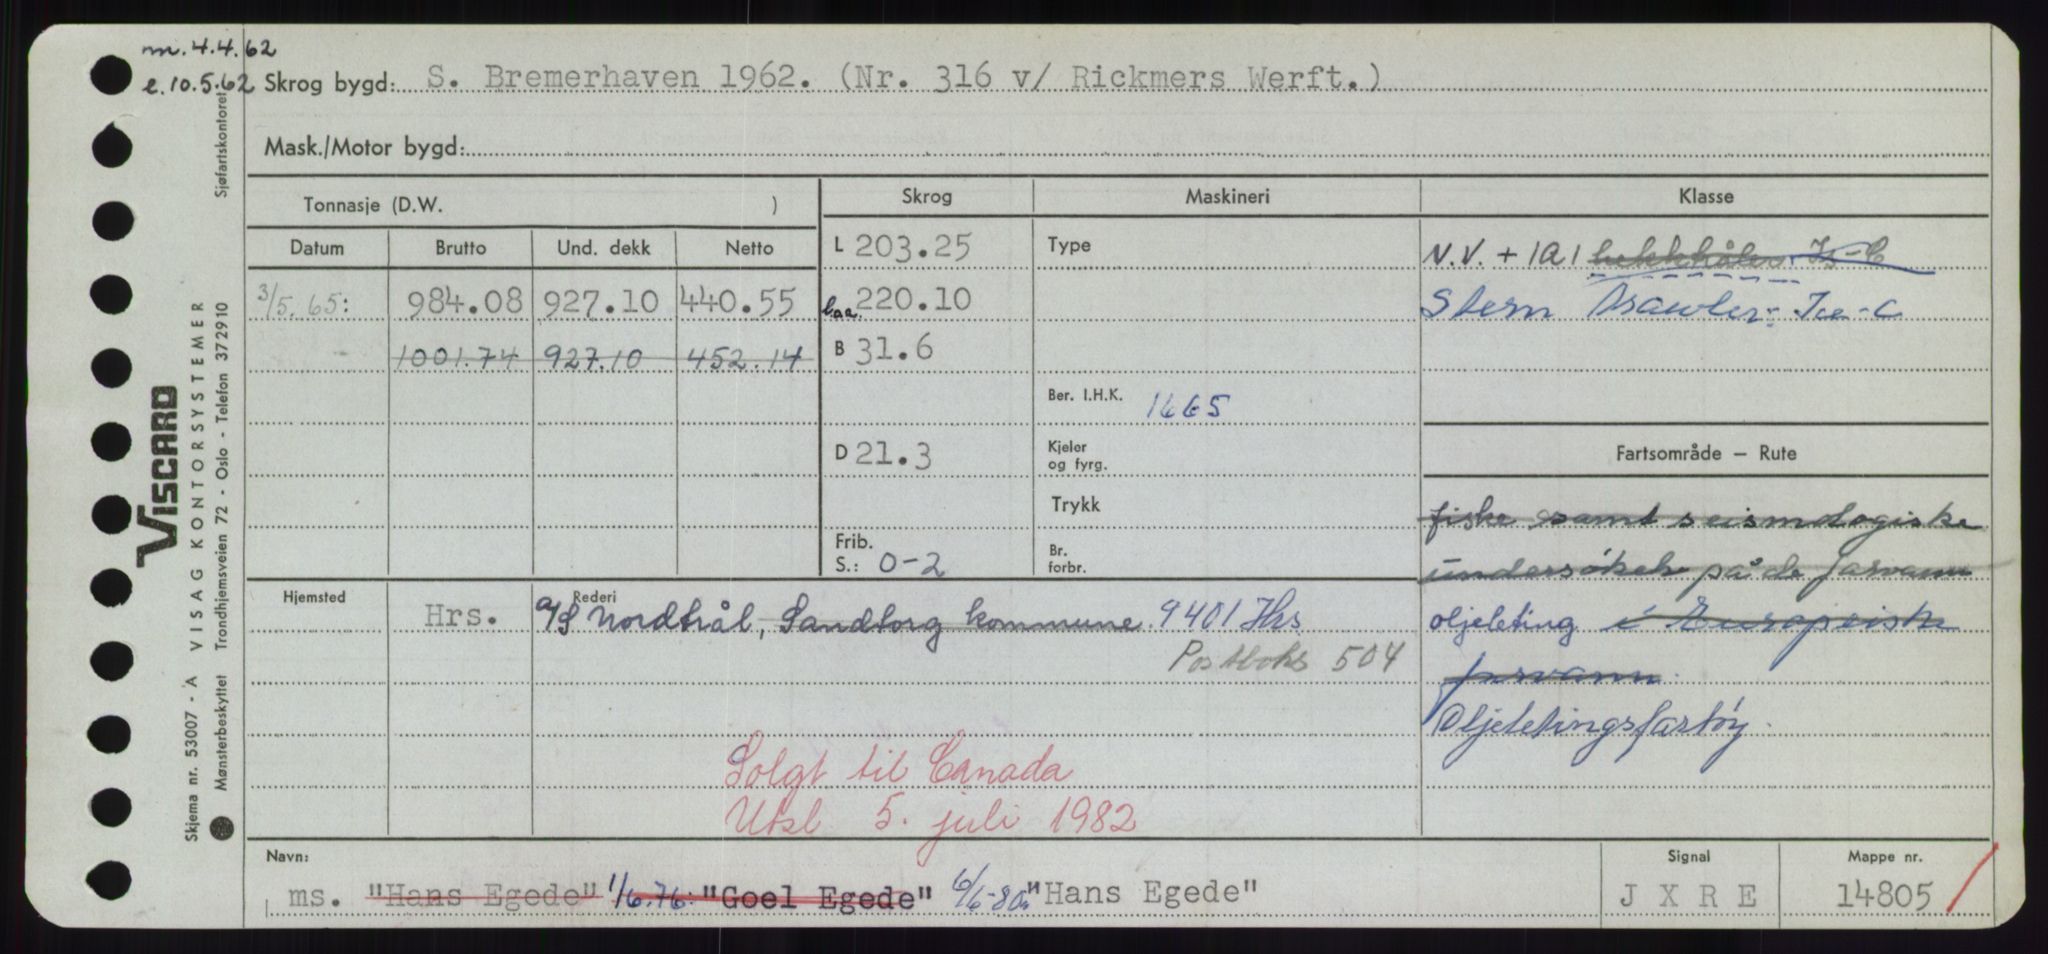 m. 4.4.62
e. 10.5.62 Skrog bygd: S. Bremerhaven 1962. (Nr. 316 v/ Rickmers Werft.)
Mask./Motor bygd:
Sjøfartskontoret
VISCARD
VISAG KONTORSYSTEMER
Skjema nr. 53007 - A
Mønsterbeskyttet Trondhjemsveien 72 - Oslo - Telefon 372910
Tonnasje (D.W. )
Datum Brutto Und. dekk Netto
3/5.65: 984.08 927.10 440.55
1001.74 927.10 452.14
Skrog
L 203.25
l.a.a. 220.10
B 31.6
D 21.3
Frib.
S.: 0-2
Maskineri
Type
Ber. I.H.K. 1665
Kjeler
og fyrg.
Trykk
Br.
forbr.
Klasse
N.V. + 1A1 hekktråler Is-C
Stern Trawler - Ice-C
Fartsområde – Rute
fiske samt seismologiske
undersøkels på de farvann
oljeleting i Europeisk
farvann.
Oljeletingsfartöy.
Hjemsted Rederi
Hrs. A/S Nordtrål, Sandtorg kommune. 9401 Hrs
Postboks 504
Solgt til Canada
Utsl 5. juli 1982
Navn:
ms. "Hans Egede" 1/6.76: "Goel Egede" 6/6-80: "Hans Egede"
Signal
J X R E
Mappe nr.
14805